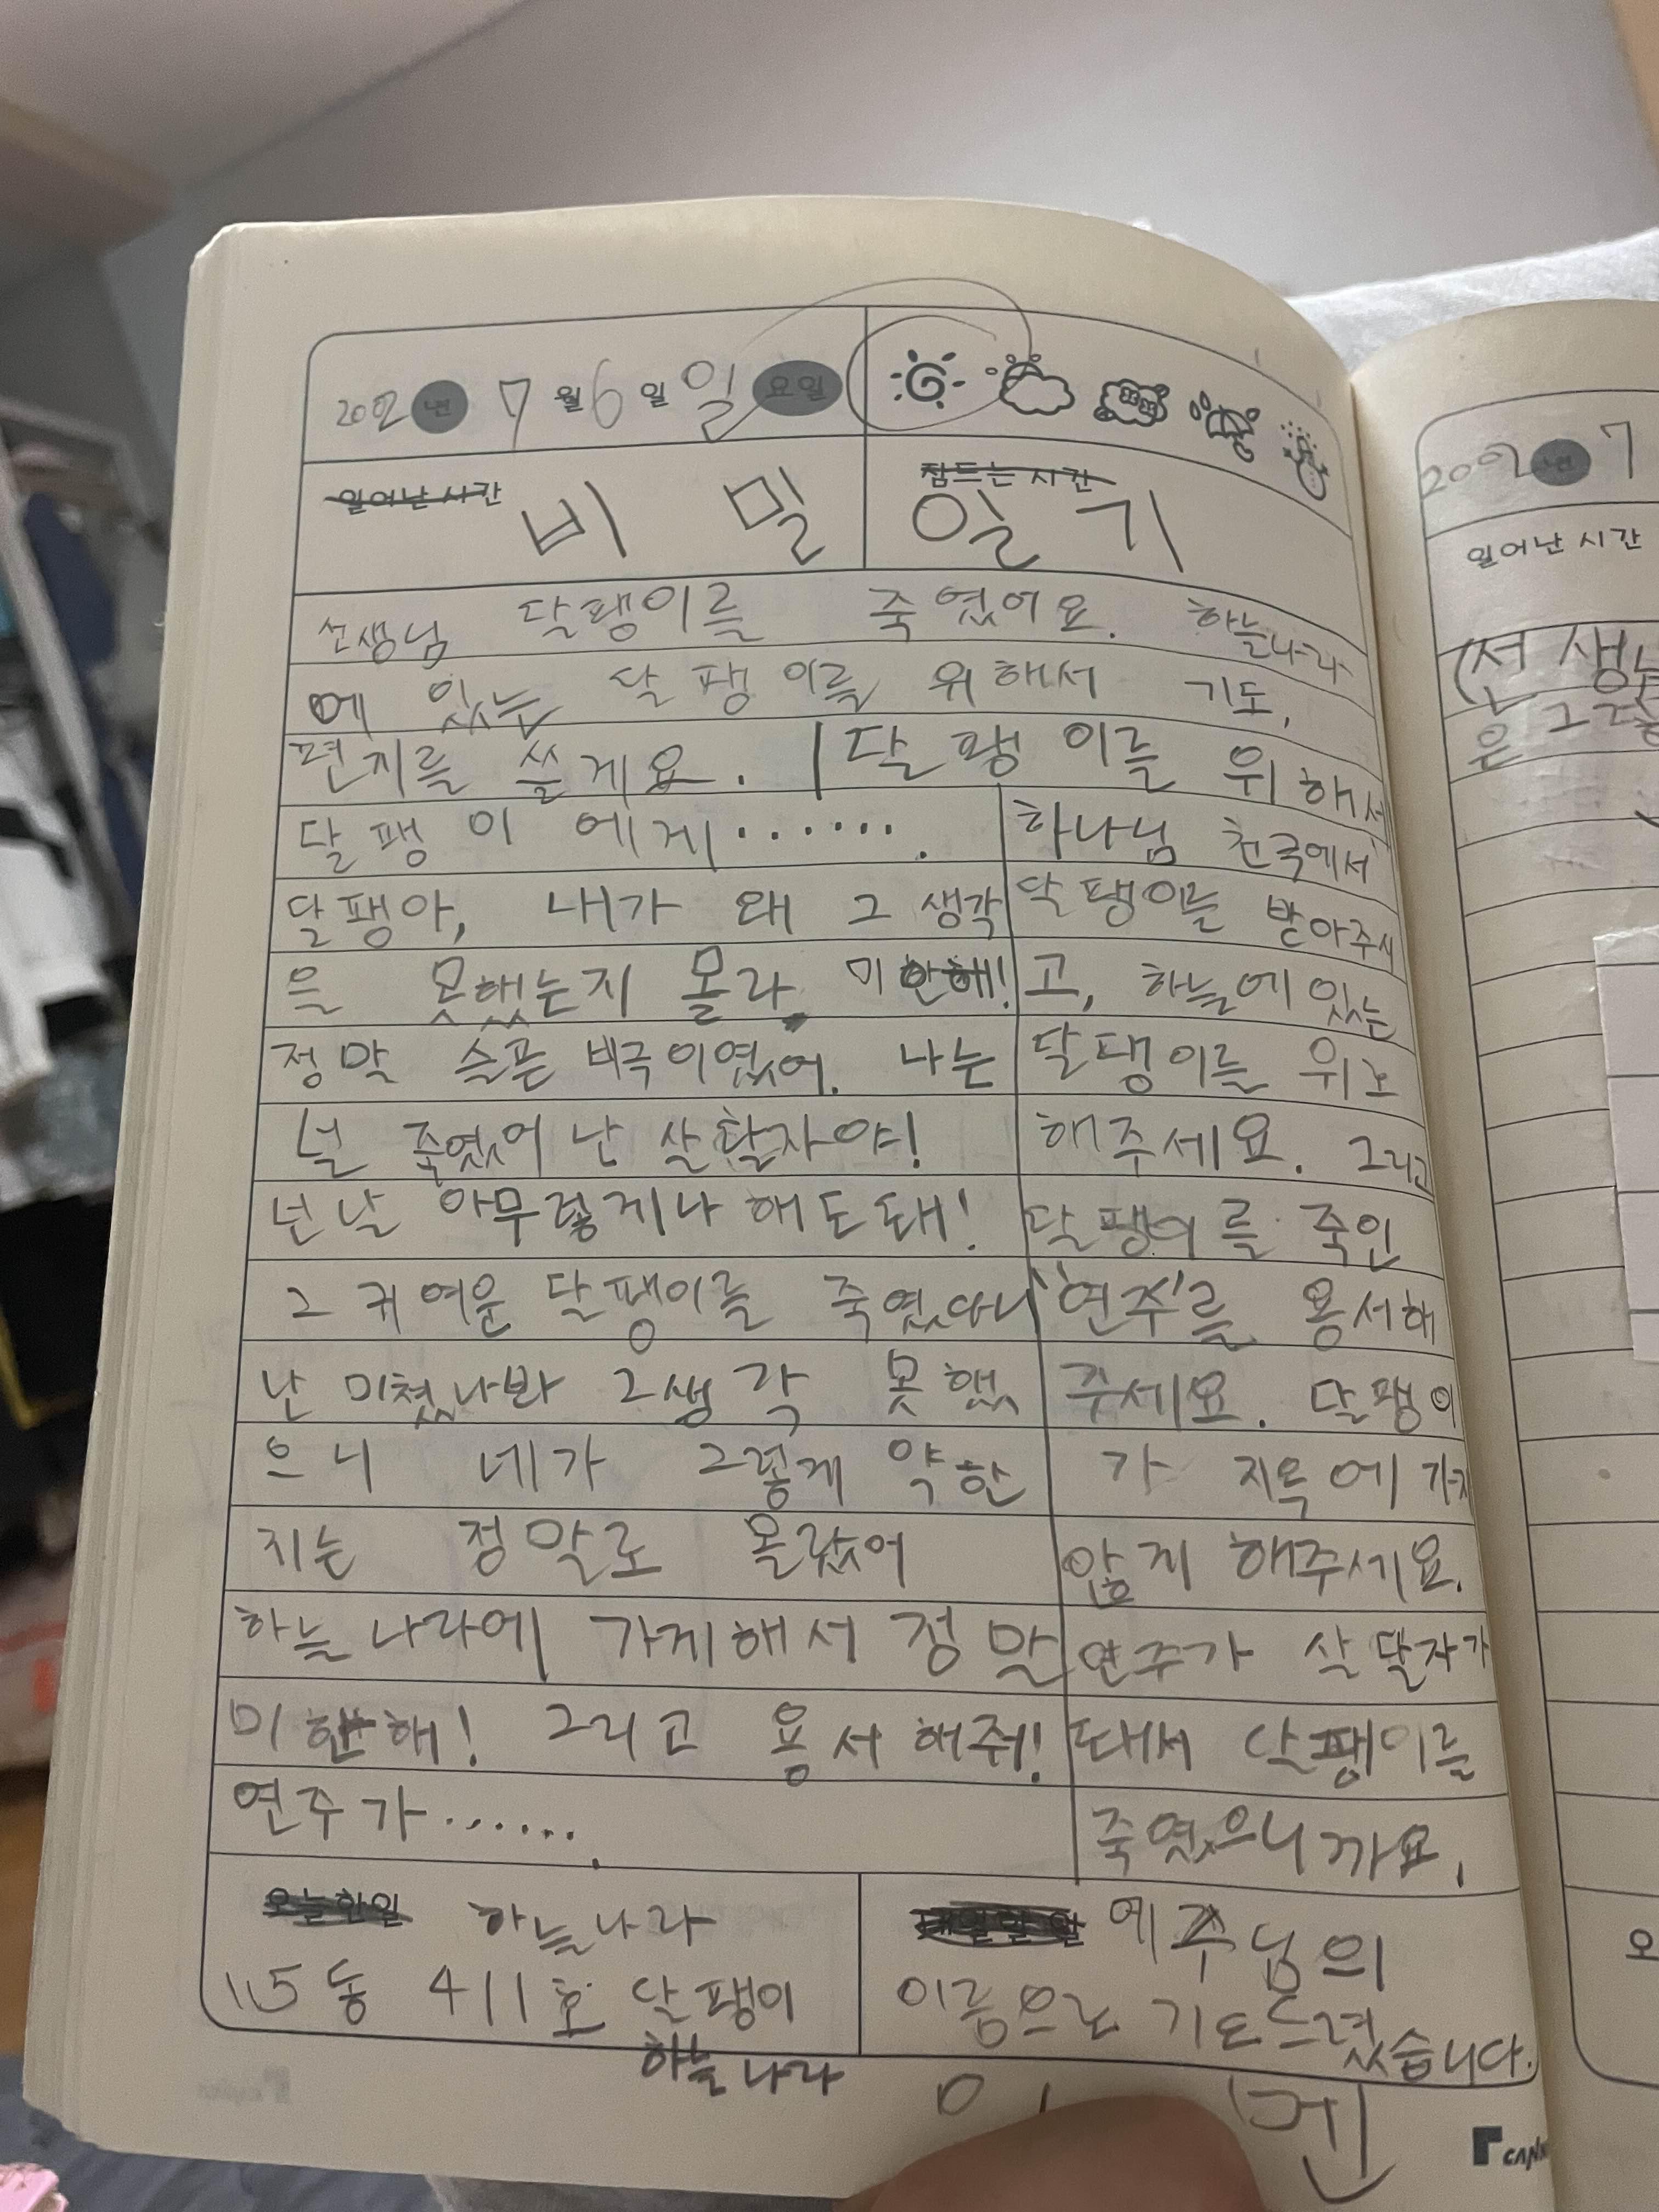 2002년 7월 6일 일요일
일어난 시간 잠드는 시간
비 밀 일 기
선생님 달팽이를 죽였어요. 하늘나라
에 있는 달팽이를 위해서 기도,
편지를 쓸게요.
달팽이에게.......
달팽아, 내가 왜 그 생각
을 못했는지 몰라. 미안해!
정말 슬픈 비극이였어. 나는
널 죽였어 난 살활자야!
넌 날 아무렇게나 해도 돼!
그 귀여운 달팽이를 죽였다니
난 미쳤나봐 그생각 못했
으니 네가 그렇게 약한
지는 정말로 몰랐어
하늘나라에 가게해서 정말
미안해! 그리고 용서해줘!
연주가.......
달팽이를 위해서
하나님 천국에서
달팽이를 받아주시
고, 하늘에 있는
달팽이를 위로
해주세요. 그리고
달팽이를 죽인
"연주"를 용서해
주세요. 달팽이
가 지옥에 가지
않게 해주세요.
연주가 살달자가
돼서 달팽이를
죽였으니까요.
오늘한일 하늘나라
115동 411호 달팽이
하늘나라
내일할일 예주님의
이름으로 기도드렸습니다.
CANN
2002년 7
일어난 시간
(선생님
은 그
오